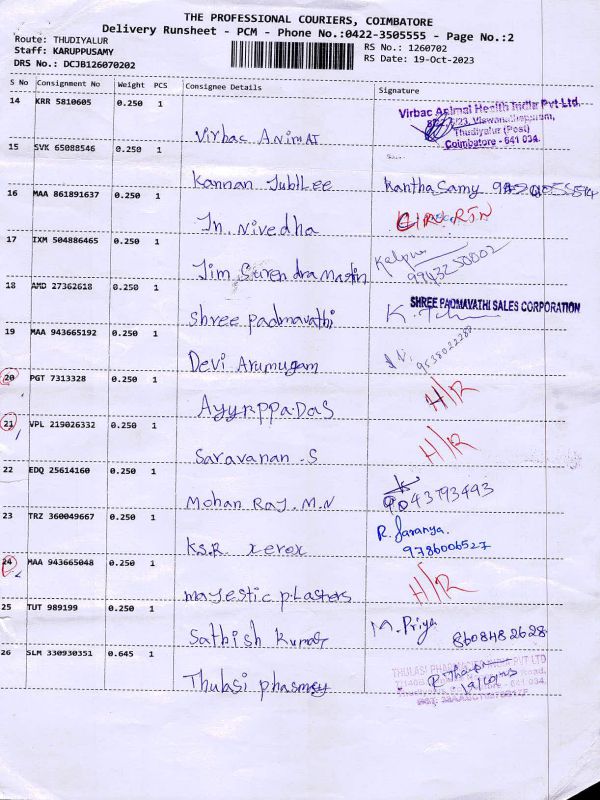 THE PROFESSIONAL COURIERS, COIMBATORE
Delivery Runsheet - PCM - Phone No.:0422-3505555 - Page No.:2
Route: THUDIYALUR
RS No.: 1260702
Staff: KARUPPUSAMY
RS Date: 19-Oct-2023
DRS No.: DCJB126070202
S No Consignment No Weight PCS Consignee Details Signature
14 KRR 5810605 0.250 1
Virbac Animal Health India Pvt.Ltd.
Thudiyalur (Post)
Coimbatore - 641 034.
Virbac ANimAl
15 SVK 65088546 0.250 1
Kannan JubiLee Kantha Samy
16 MAA 861891637 0.250 1
Jn. Nivedha
17 IXM 504886465 0.250 1
Kalpana
9943250002
Jim Surendra Mastin
18 AMD 27362618 0.250 1
SHREE PADMAVATHI SALES CORPORATION
Shree padmavathi
19 MAA 943665192 0.250 1
Devi Arumugam
20 PGT 7313328 0.250 1
H/R
Ayyappa DaS
21 VPL 219026332 0.250 1
H/R
Saravanan .S
22 EDQ 25614160 0.250 1
9043793493
Mohan Raj. M.N
23 TRZ 360049667 0.250 1
R. Saranya.
9786006527
KS.R xerox
24 MAA 943665048 0.250 1
H/R
majestic pLasters
25 TUT 989199 0.250 1
M. Priya
8608482628
Sathish Kumar
26 SLM 330930351 0.645 1
THULASI PHARMACIES INDIA PVT LTD
Thulasi phasmsy